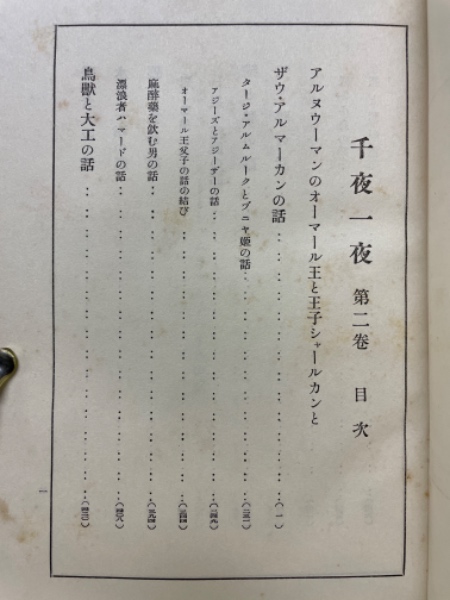 千夜一夜 第二卷 目次
アルヌウーマンのオーマール王と王子シャールカンと
ザウ・アルマーカンの話……………………(一)
タージ・アルムルークとヅニヤ姬の話……………………
アジーズとアジーデーの話……………………
オーマール王父子の話の結び……………………
麻醉藥を飮む男の話……………………
漂浪者ハマードの話……………………
鳥獸と大工の話……………………
一